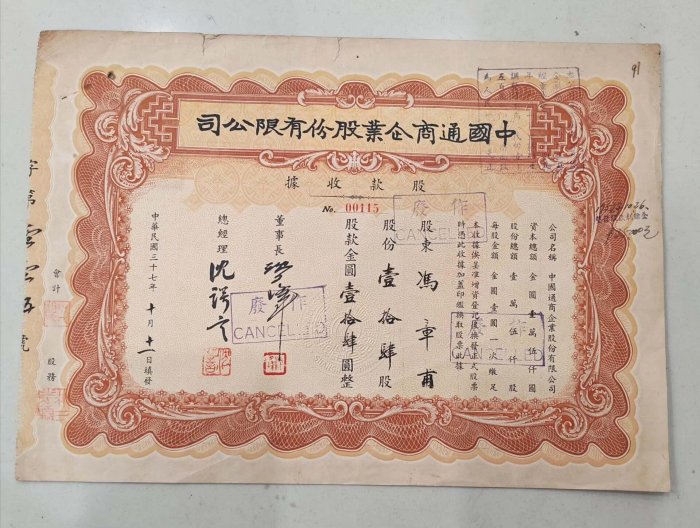 中國通商企業股份有限公司
股款收據
No. 00115
公司名稱 中國通商企業股份有限公司
資本總額 金圓壹萬伍仟圓
股份總額 壹萬伍仟股
每股金額 金圓壹圓一次繳足
本收據俟呈准增資登記後換發正式股票
時憑此收據加蓋印鑑換取股票此據
股東 馮章甫
股份 壹拾肆股
股款金圓壹拾肆圓整
董事長
總經理
中華民國三十七年十月十一日填發
作廢
CANCELLED
作廢
CANCELLED
會計
股務
字第
號
91